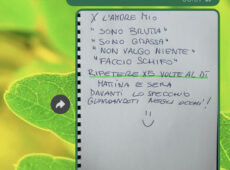 X L'AMORE MIO
"SONO BRUTTA"
"SONO GRASSA"
"NON VALGO NIENTE"
"FACCIO SCHIFO"
RIPETERE X5 VOLTE AL DÌ
MATTINA E SERA
DAVANTI LO SPECCHIO
GUARDANDOTI NEGLI OCCHI!